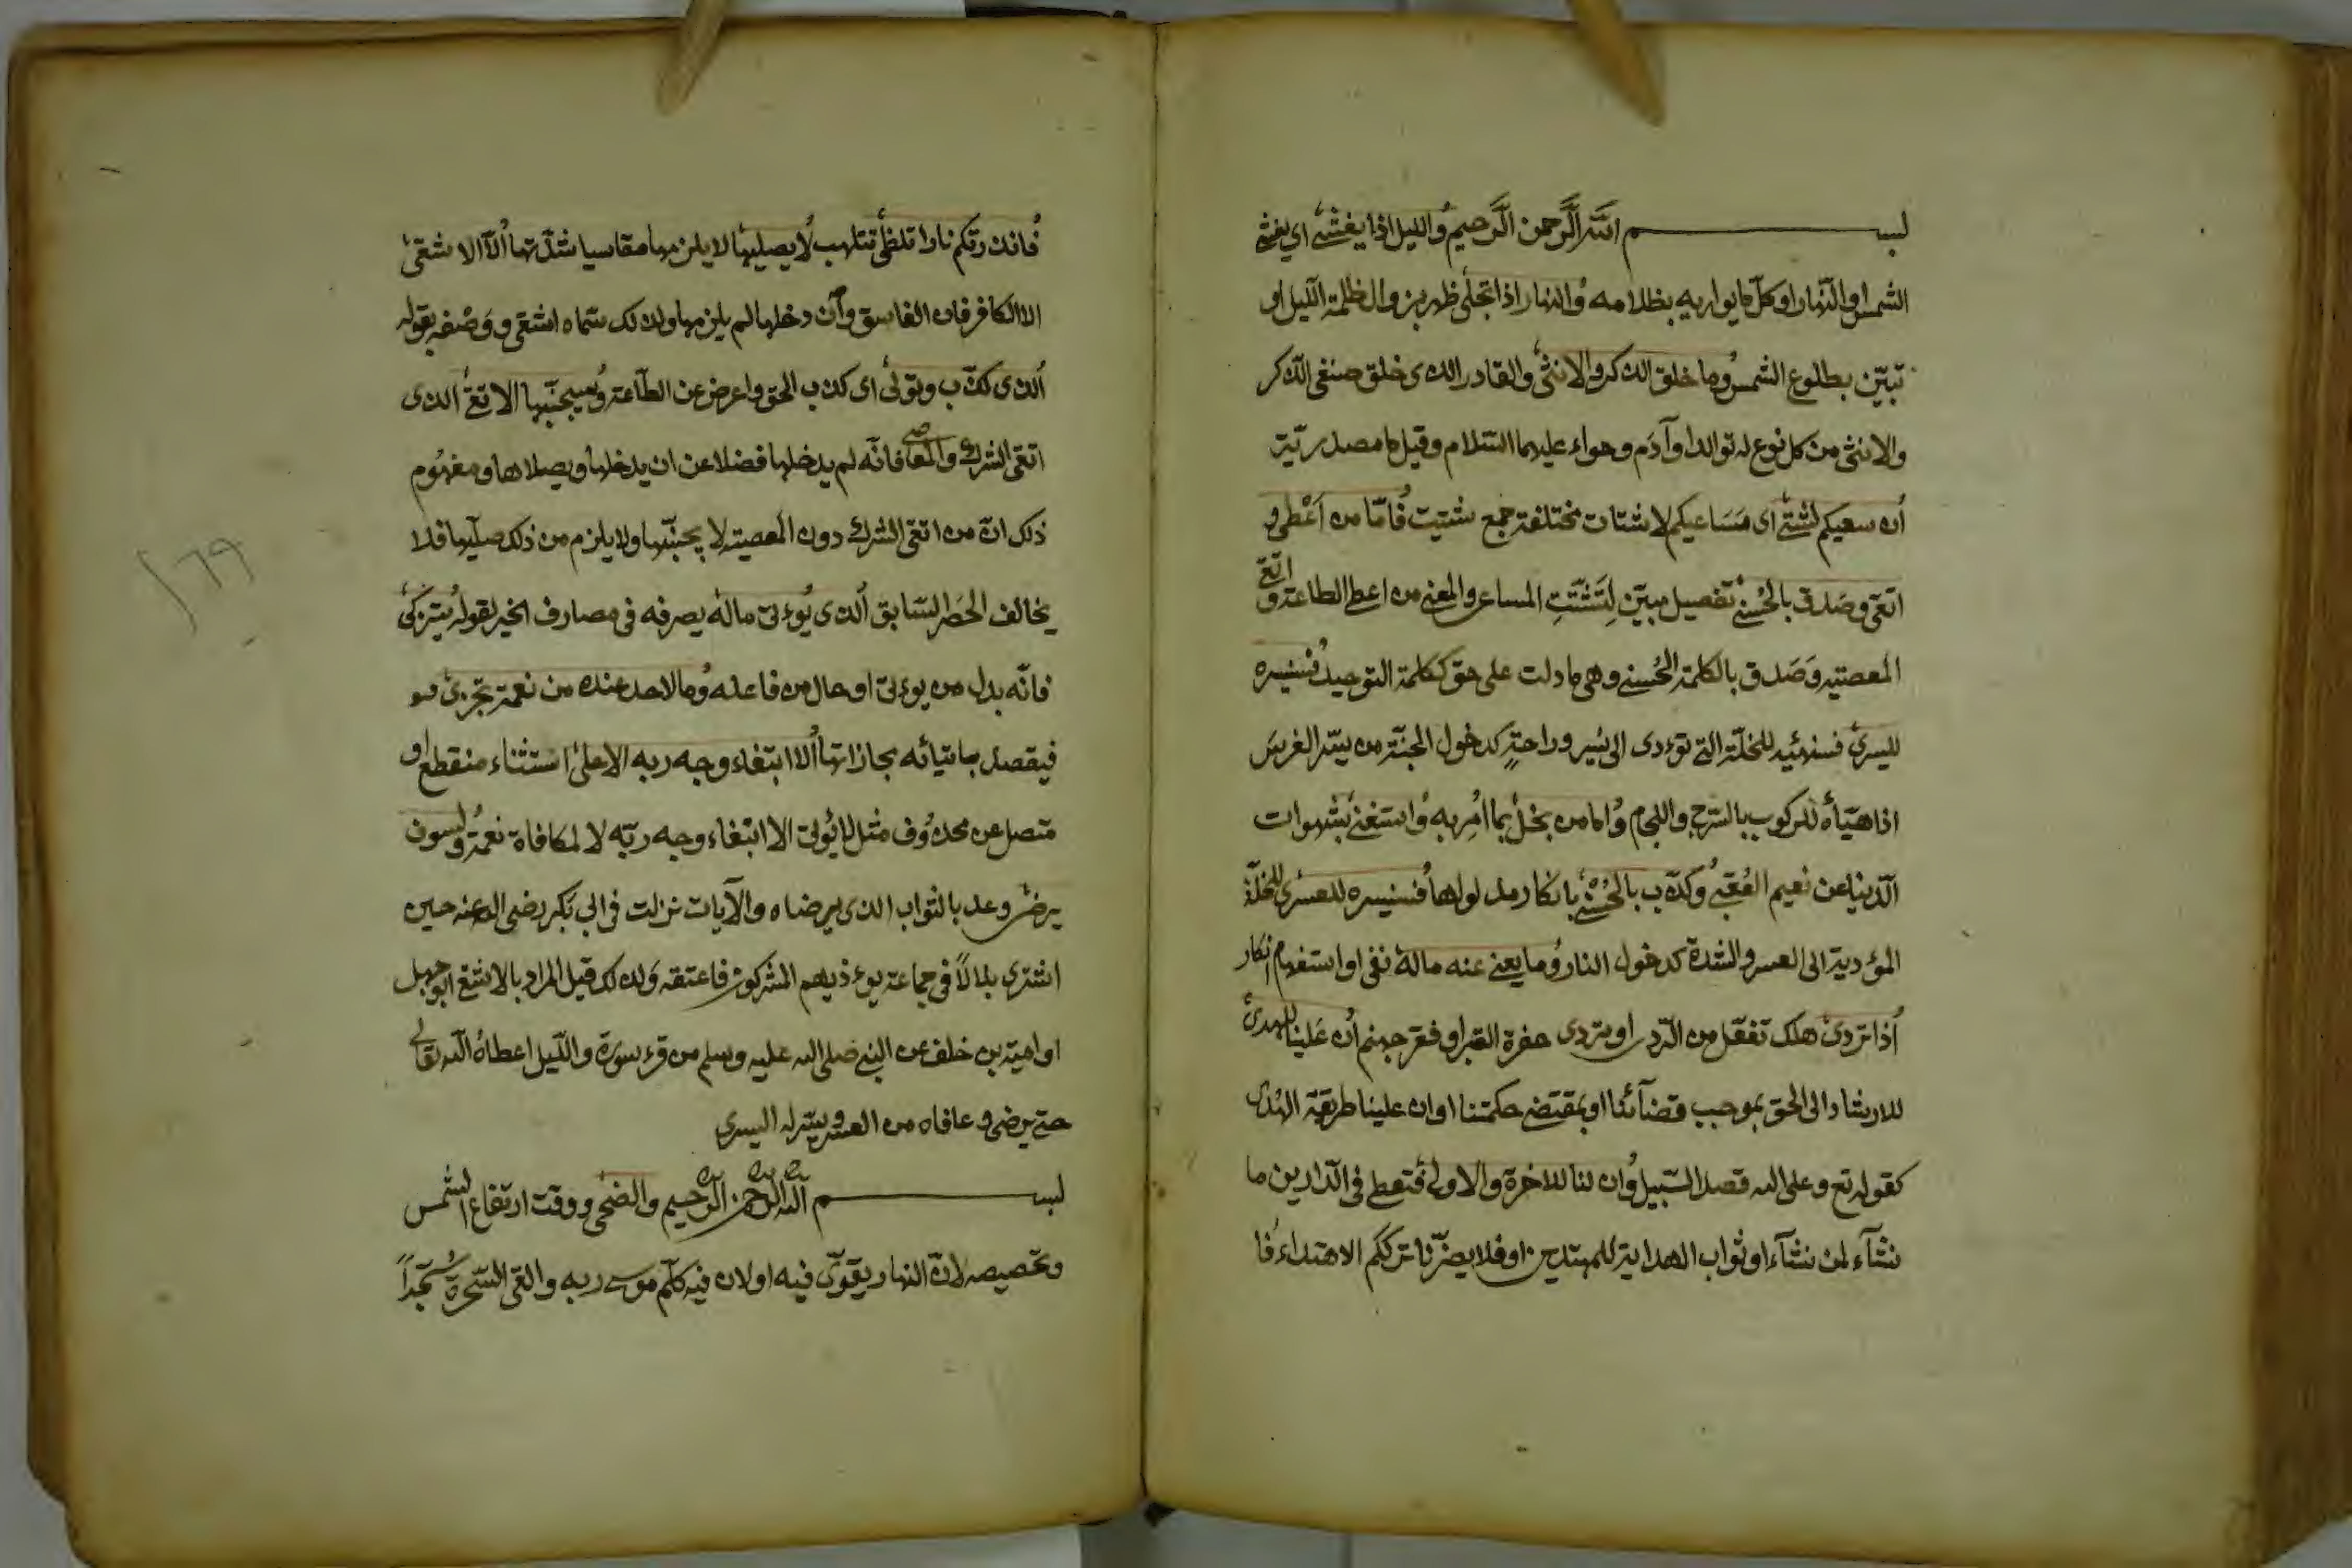 بسم الله الرحمن الرحيم والليل اذا يغشى اي يغشى
الشمس او النهار او كل ما يواريه بظلامه والنهار اذا تجلى ظهر بزوال ظلمة الليل او
تبين بطلوع الشمس وما خلق الذكر والانثى والقادر الذى خلق صنفى الذكر
والانثى من كل نوع له توالد او آدم وحواء عليهما السلام وقيل ما مصدرية
ان سعيكم لشتى اى مساعيكم لاشتات مختلفة جمع شتيت فاما من اعطى و
اتقى وصدق بالحسنى تفصيل مبين لتشتت المساعى والمعنى من اعطى الطاعة واتقى
المعصية وصدق بالكلمة الحسنى وهى ما دلت على حق ككلمة التوحيد فسنيسره
لليسرى فسنهيئه للخلة التى تؤدى الى يسر وراحة كدخول الجنة من يسر الفرس
اذا هيأه للركوب بالسرج واللجام واما من بخل بما امر به واستغنى بشهوات
الدنيا عن نعيم العقبى وكذب بالحسنى بانكار مدلولها فسنيسره للعسرى للخلة
المؤدية الى العسر والشدة كدخول النار وما يغنى عنه ماله نفى او استفهام انكار
اذا تردى هلك تفعل من الردى او تردى حفرة القبر او قعر جهنم ان علينا للهدى
للارشاد الى الحق بموجب قضآئنا او بمقتضى حكمتنا او ان علينا طريقة الهدى
كقوله تع وعلى الله قصد السبيل وان لنا للاخرة والاولى فنعطى فى الدارين ما
نشآء لمن نشآء او ثواب الهداية للمهتدين او فلا يضرنا ترككم الاهتداء فا
فانذرتكم نارا تلظى تتلهب لا يصليها لا يلزمها مقاسيا شدتها الا الاشقى
الا الكافر فان الفاسق وان دخلها لم يلزمها ولذلك سماه اشقى ووصفه بقوله
الذى كذب وتولى اى كذب الحق واعرض عن الطاعة وسيجنبها الاتقى الذى
اتقى الشرك والمعاصى فانه لم يدخلها فضلا عن ان يدخلها ويصلاها ومفهوم
ذلك ان من اتقى الشرك دون المعصية لا يجنبها ولا يلزم من ذلك صليها فلا
يخالف الحصر السابق الذى يؤتى ماله يصرفه فى مصارف الخير لقوله يتزكى
فانه بدل من يؤتى او حال من فاعله وما لاحد عنده من نعمة تجزى
فيقصد باتيائه مجازاتها الا ابتغاء وجه ربه الاعلى استثناء منقطع او
متصل عن محذوف مثل لا يؤتى الا ابتغاء وجه ربه لا لمكافاة نعمة ولسوف
يرضى وعد بالثواب الذى يرضاه والآيات نزلت فى ابى بكر رضى الله عنه حين
اشترى بلالا فى جماعة يوءذيهم المشركون فاعتقه ولذلك قيل المراد بالاشقى ابو جهل
او امية بن خلف عن النبى صلى الله عليه وسلم من قرء سورة والليل اعطاه الله تعالى
حتى يرضى وعافاه من العسر ويسر له اليسرى
بسم الله الرحمن الرحيم والضحى ووقت ارتفاع الشمس
وتخصيصه لان النهار يقوى فيه او لان فيه كلم موسى ربه والقى السحرة سجدا
١٦٩